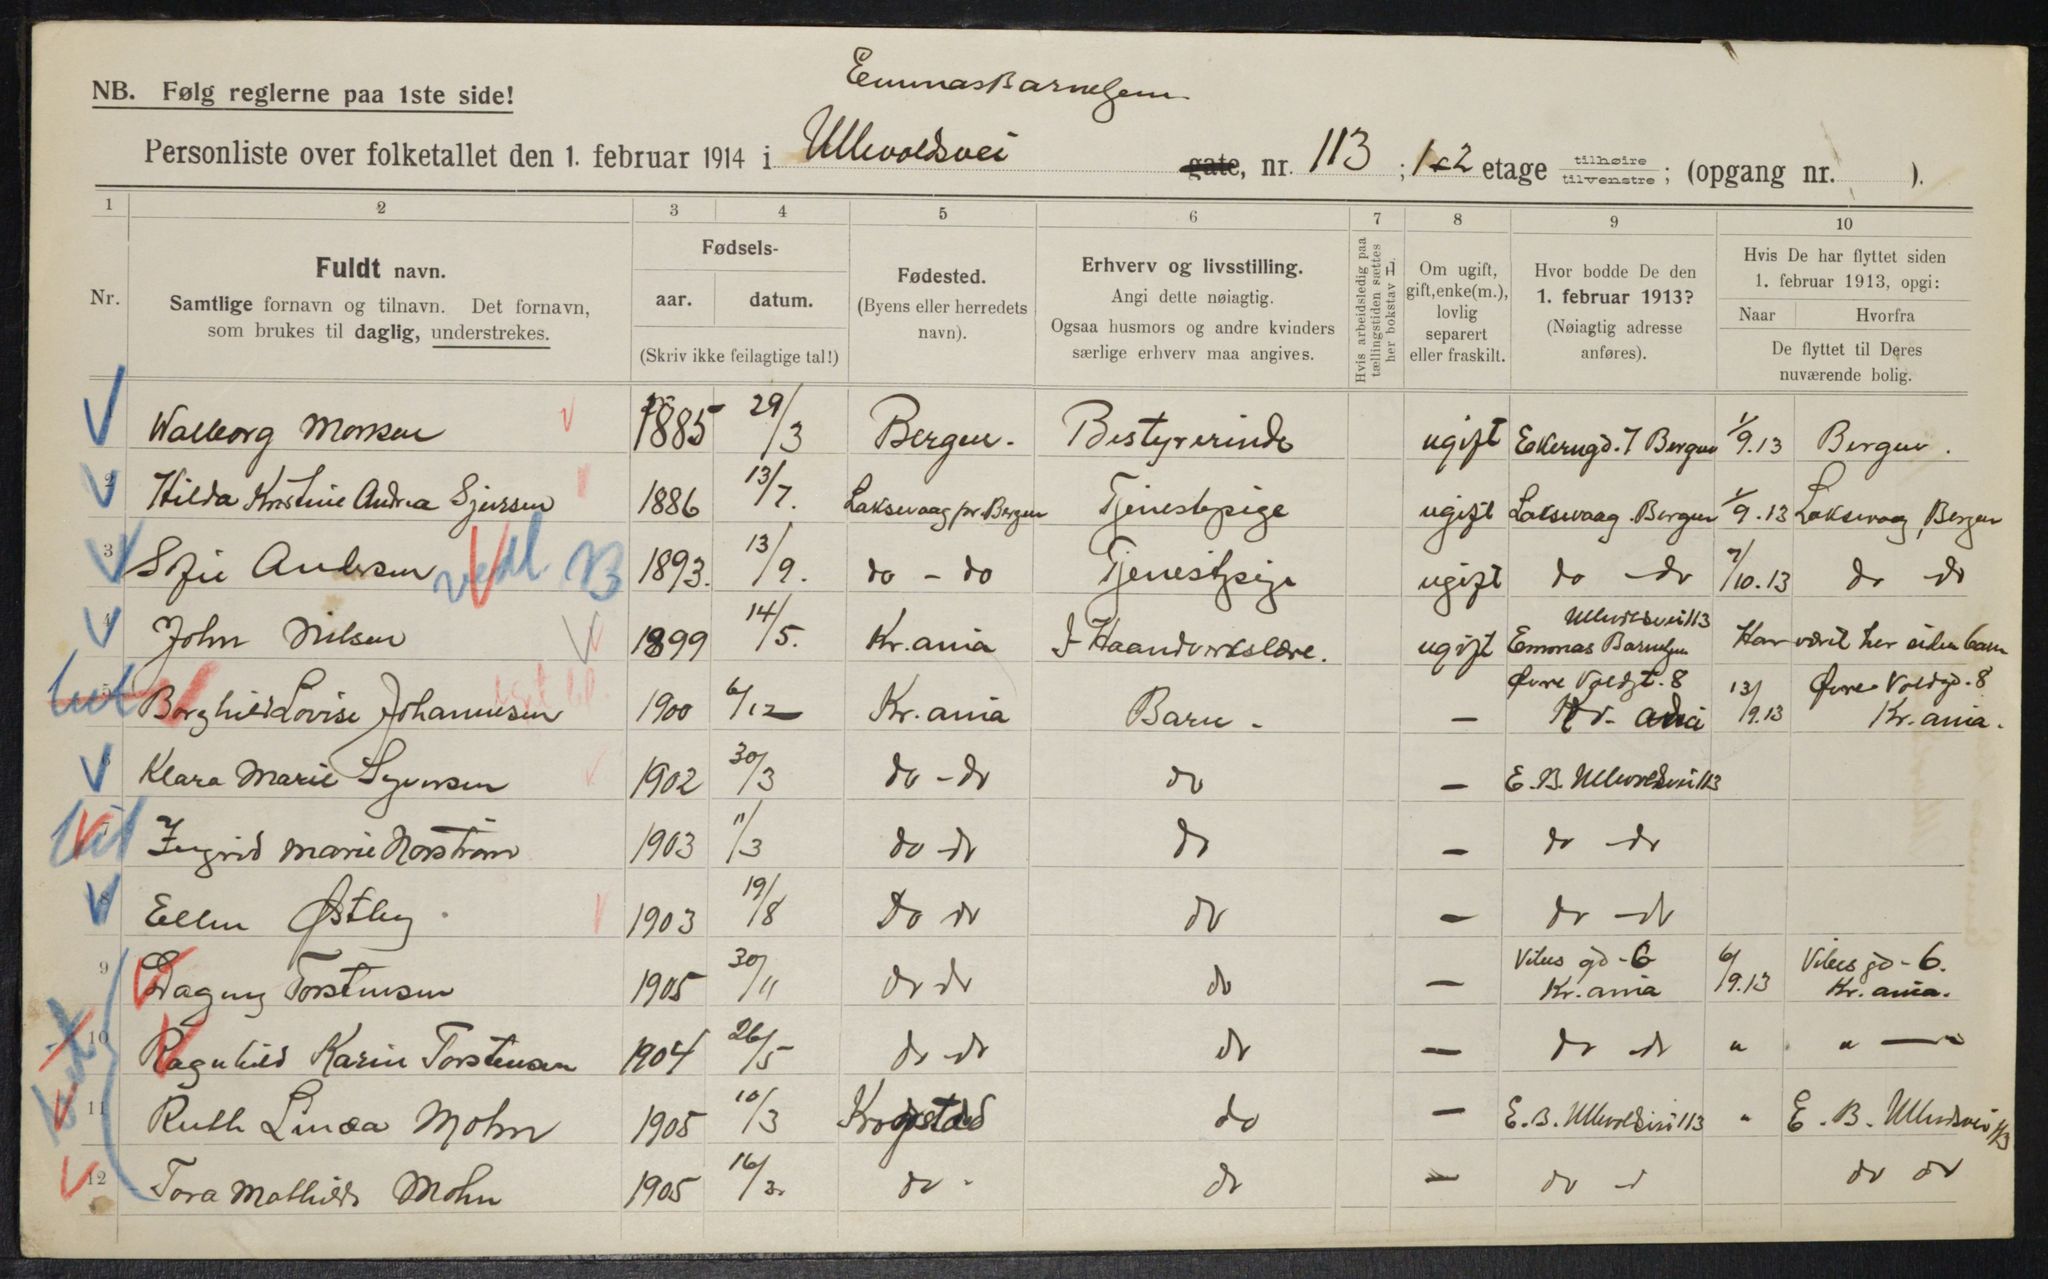 EmmasBarnehjem
NB. Følg reglerne paa 1ste side!
Personliste over folketallet den 1. februar 1914 i Ullevoldsvei gate, nr. 113 ; 1-2 etage tilhøire tilvenstre; (opgang nr. ).
1 2 3 4 5 6 7 8 9 10
Nr.
Fuldt navn.
Samtlige fornavn og tilnavn. Det fornavn,
som brukes til daglig, understrekes.
Fødsels-
aar. datum.
(Skriv ikke feilagtige tal!)
Fødested.
(Byens eller herredets
navn).
Erhverv og livsstilling.
Angi dette nøiagtig.
Ogsaa husmors og andre kvinders
særlige erhverv maa angives.
Hvis arbeidsledig paa
tællingstiden sættes
her bokstav L.
Om ugift,
gift, enke(m.),
lovlig
separert
eller fraskilt.
Hvor bodde De den
1. februar 1913?
(Nøiagtig adresse
anføres).
Hvis De har flyttet siden
1. februar 1913, opgi:
Naar Hvorfra
De flyttet til Deres
nuværende bolig.
Walborg Monsen 1885 29/3 Bergen. Bestyrerinde ugift 7 Bergen 1/9.13 Bergen.
2 Hilda Kristine Andrea Sjursen 1886 13/7. Laksevaag pr. Bergen Tjenestpige ugift Laksevaag. Bergen 1/9.13 Laksevaag, Bergen
3 Sofie Andersen vedl. B 1893. 13/9. do - do Tjenestpige ugift do - do 7/10.13 do do
4 John Nilsen 1899 14/5. Kr.ania I Haandverkslære. ugift Ullevoldsvei 113
Emmas Barnehjem Har været her siden
5 Borghild Lovise Johannesen 1900 6/12 Kr.ania Barn - — Øvre Voldgt. 8 13/9.13 Øvre Voldgd. 8
Kr. ania.
6 Klara Marie Syversen 1902 30/3 do - do do — E. B. Ullevoldsvei 113
7 Ingrid Marie Norstrøm 1903 11/3 do do do — do do
8 Ellen Østby 1903 19/8 Do do do — do do
9 Dagny Torstensen 1905 30/11 do do do — Vibes gd - 6 6/9.13 Vibes gd - 6.
Kr. ania Kr. ania.
10 Ragnhild Karin Torstensen 1904 26/5 do do do — do do " " —
11 Ruth Linea Mohn 1905 10/3 Krogstad do — E. B. Ullevoldsvei 113 " E. B. Ullevoldsvei 113
12 Tora Mathilde Mohn 1905 16/3. do - do — do do do